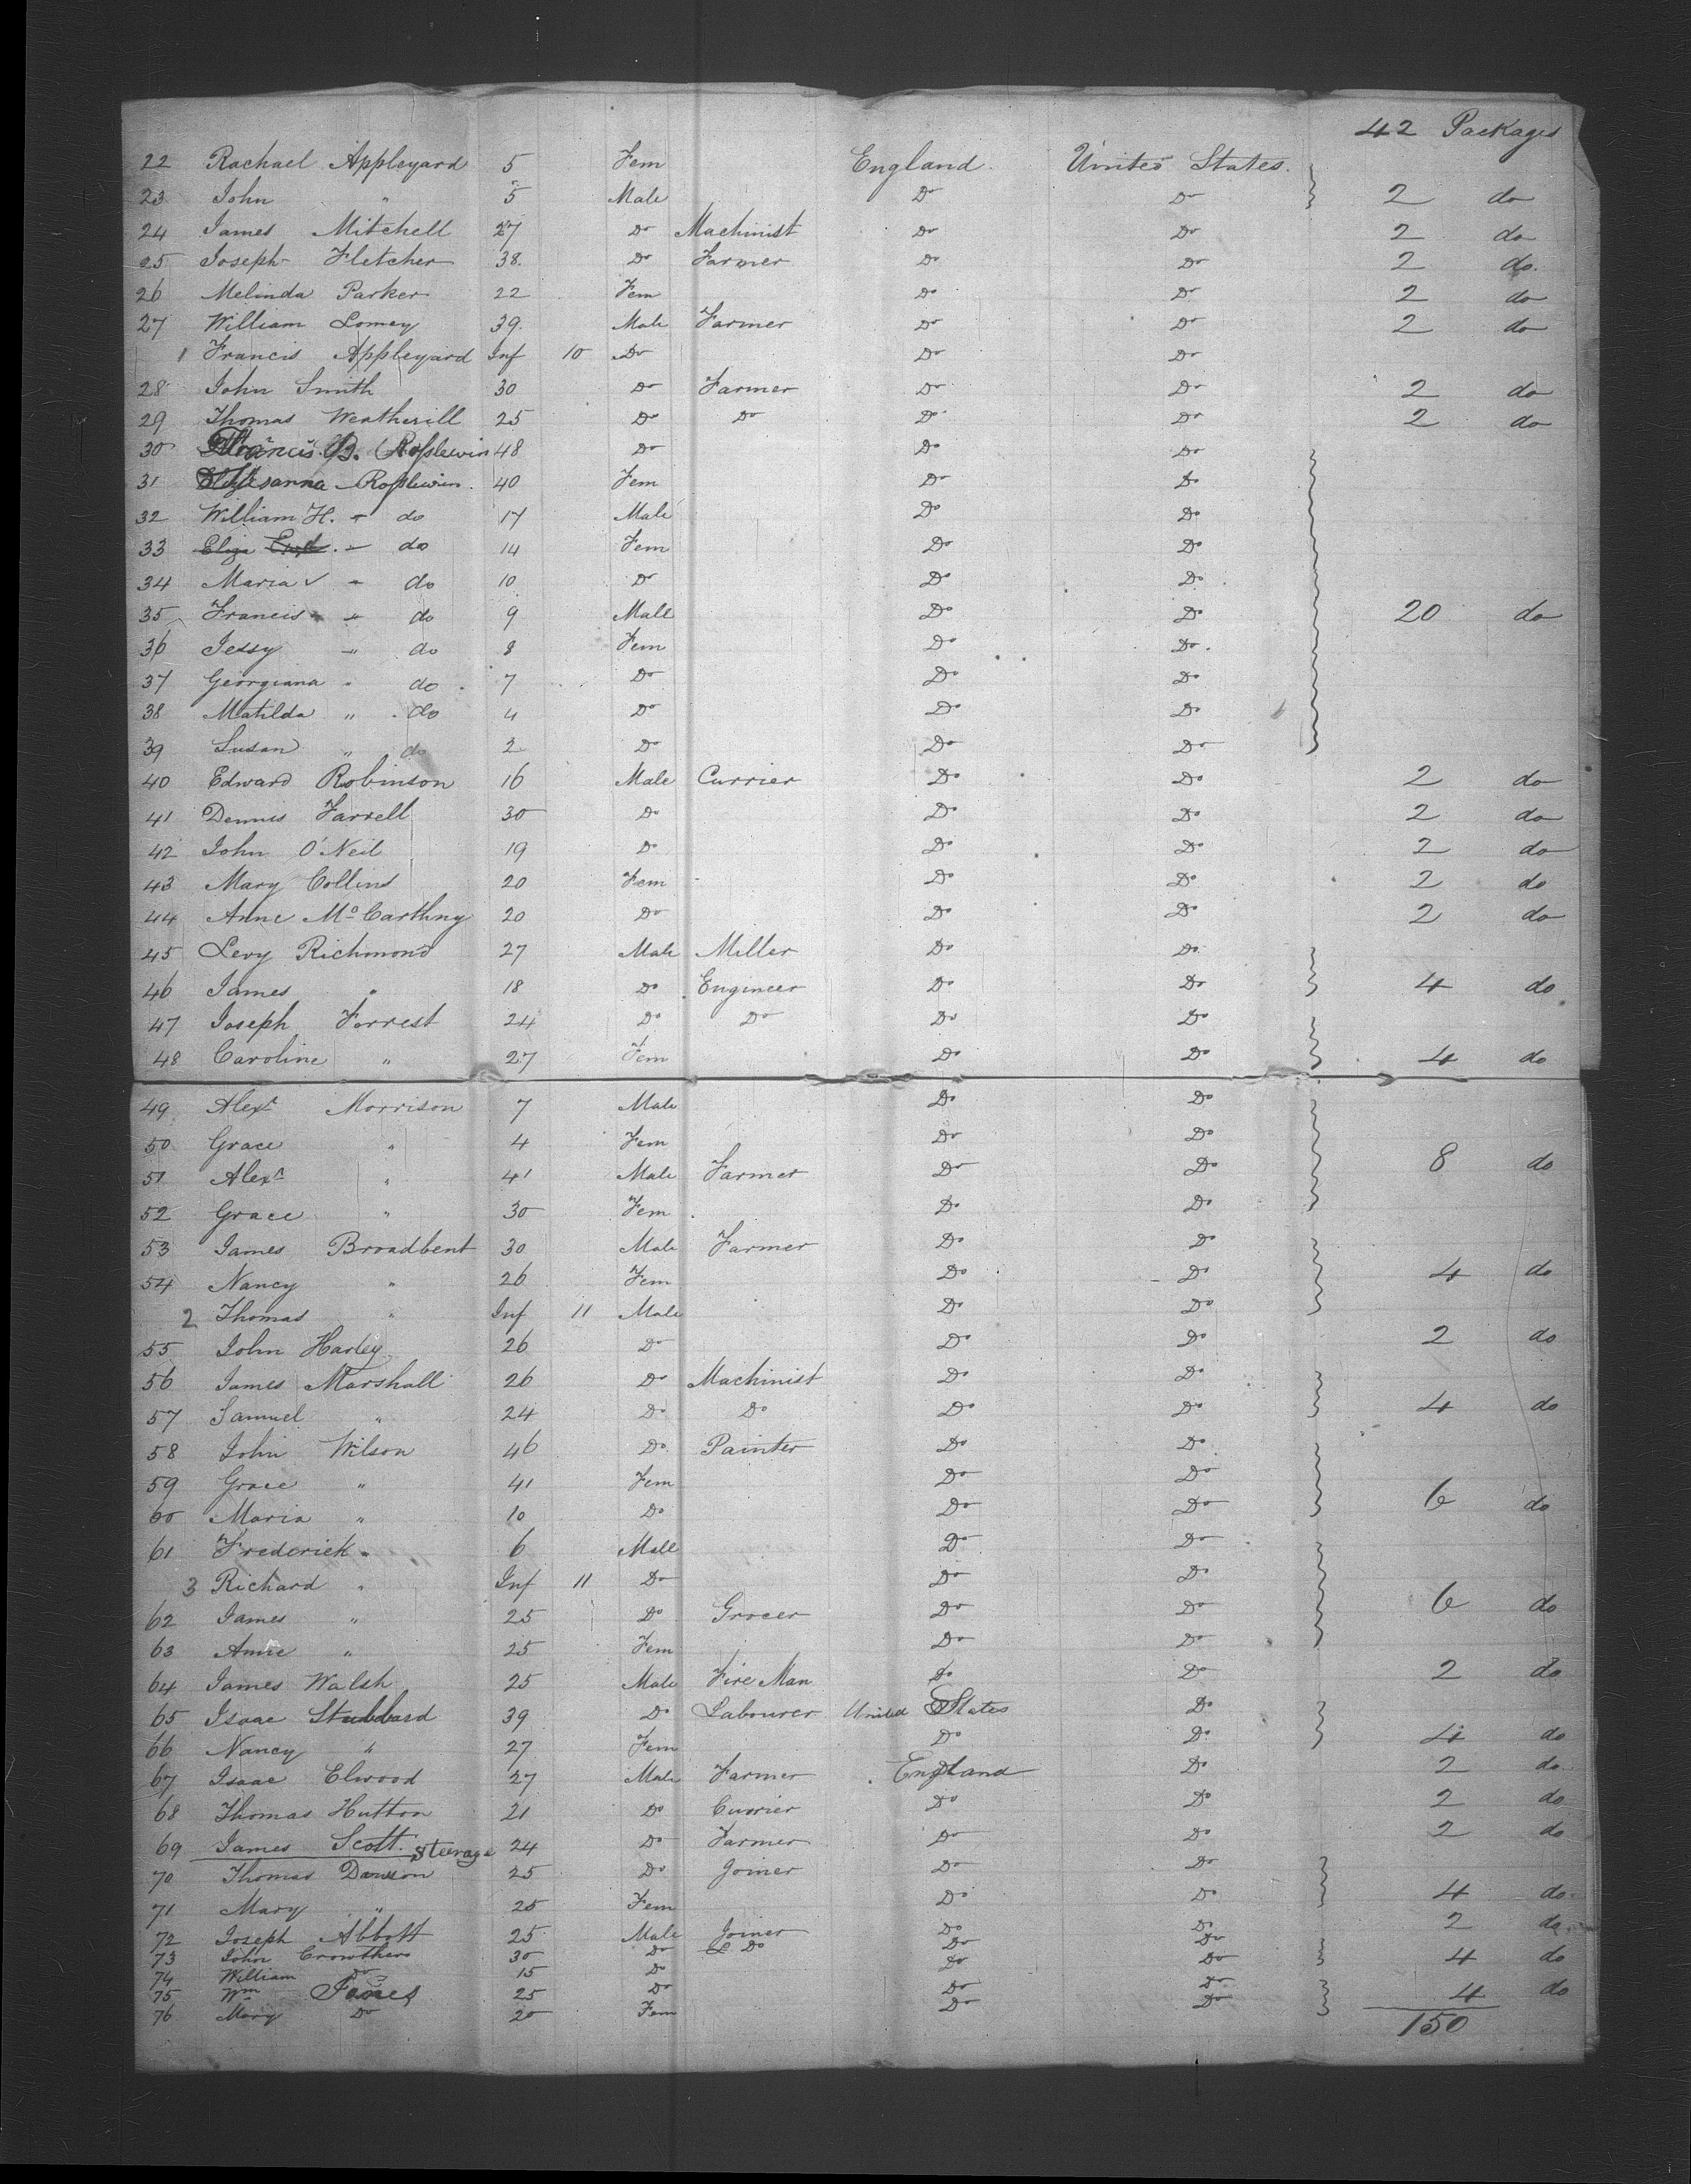 42 Packages
22 Rachael Appleyard 5 Fem England United States
23 John " 5 Male Do Do 2 do
24 James Mitchell 27 Do Machinist Do Do 2 do
25 Joseph Fletcher 38. Do Farmer Do Do 2 do.
26 Melinda Parker 22 Fem Do Do 2 do
27 William Lomey 39. Male Farmer Do Do 2 do
1 Francis Appleyard Inf 10 Do Do Do
28 John Smith 30 Do Farmer Do Do 2 do
29 Thomas Weatherill 25 Do Do Do Do 2 do
30 Francis B. Rosslewin 48 Do Do Do
31 Rosslewin. 40 Fem Do Do
32 William H. " do 17 Male Do Do
33 Eliza " do 14 Fem Do Do
34 Maria " do 10 Do Do Do
35 Francis " do 9 Male Do Do 20 do
36 Jessy " do 8 Fem Do Do
37 Georgiana " do 7 Do Do Do
38 Matilda " do 4 Do Do Do
39 Susan " do 2 Do Do Do
40 Edward Robinson 16 Male Currier Do Do 2 do
41 Dennis Farrell 30 Do Do Do 2 do
42 John O'Neil 19 Do Do Do 2 do
43 Mary Collins 20 Fem Do Do 2 do
44 Anne Mc Carthny 20 Do Do Do 2 do
45 Levy Richmond 27 Male Miller Do Do
46 James " 18 Do Engineer Do Do 4 do
47 Joseph Forrest 24 Do Do Do Do
48 Caroline " 27 Fem Do Do 4 do
49 Alexr Morrison 7 Male Do Do
50 Grace " 4 Fem Do Do
51 Alexr " 41 Male Farmer Do Do 8 do
52 Grace " 30 Fem Do Do
53 James Broadbent 30 Male Farmer Do Do
54 Nancy " 26 Fem Do Do 4 do
2 Thomas " Inf 11 Male Do Do
55 John Harley 26 Do Do Do 2 do
56 James Marshall 26 Do Machinist Do Do
57 Samuel " 24 Do Do Do Do 4 do
58 John Wilson 46 Do Painter Do Do
59 Grace " 41 Fem Do Do
60 Maria " 10 Do Do Do 6 do
61 Frederick " 6 Male Do Do
3 Richard " Inf 11 Do Do Do
62 James " 25 Do Grocer Do Do 6 do
63 Anne " 25 Fem Do Do
64 James Walsh 25 Male Fire Man Do Do 2 do
65 Isaac Stubbard 39 Do Labourer United States Do
66 Nancy " 27 Fem Do Do 4 do
67 Isaac Elwood 27 Male Farmer England Do 2 do
68 Thomas Hutton 21 Do Currier Do Do 2 do
69 James Scott. Steerage 24 Do Farmer Do Do 2 do
70 Thomas Dawson 25 Do Joiner Do Do
71 Mary " 25 Fem Do Do 4 do
72 Joseph Abbott 25 Male Joiner Do Do 2 do
73 John Crowthers 30 Do Do Do Do
74 William Do 15 Do Do Do 4 do
75 Wm Jones 25 Do Do Do
76 Mary Do 20 Fem Do Do 4 do
150